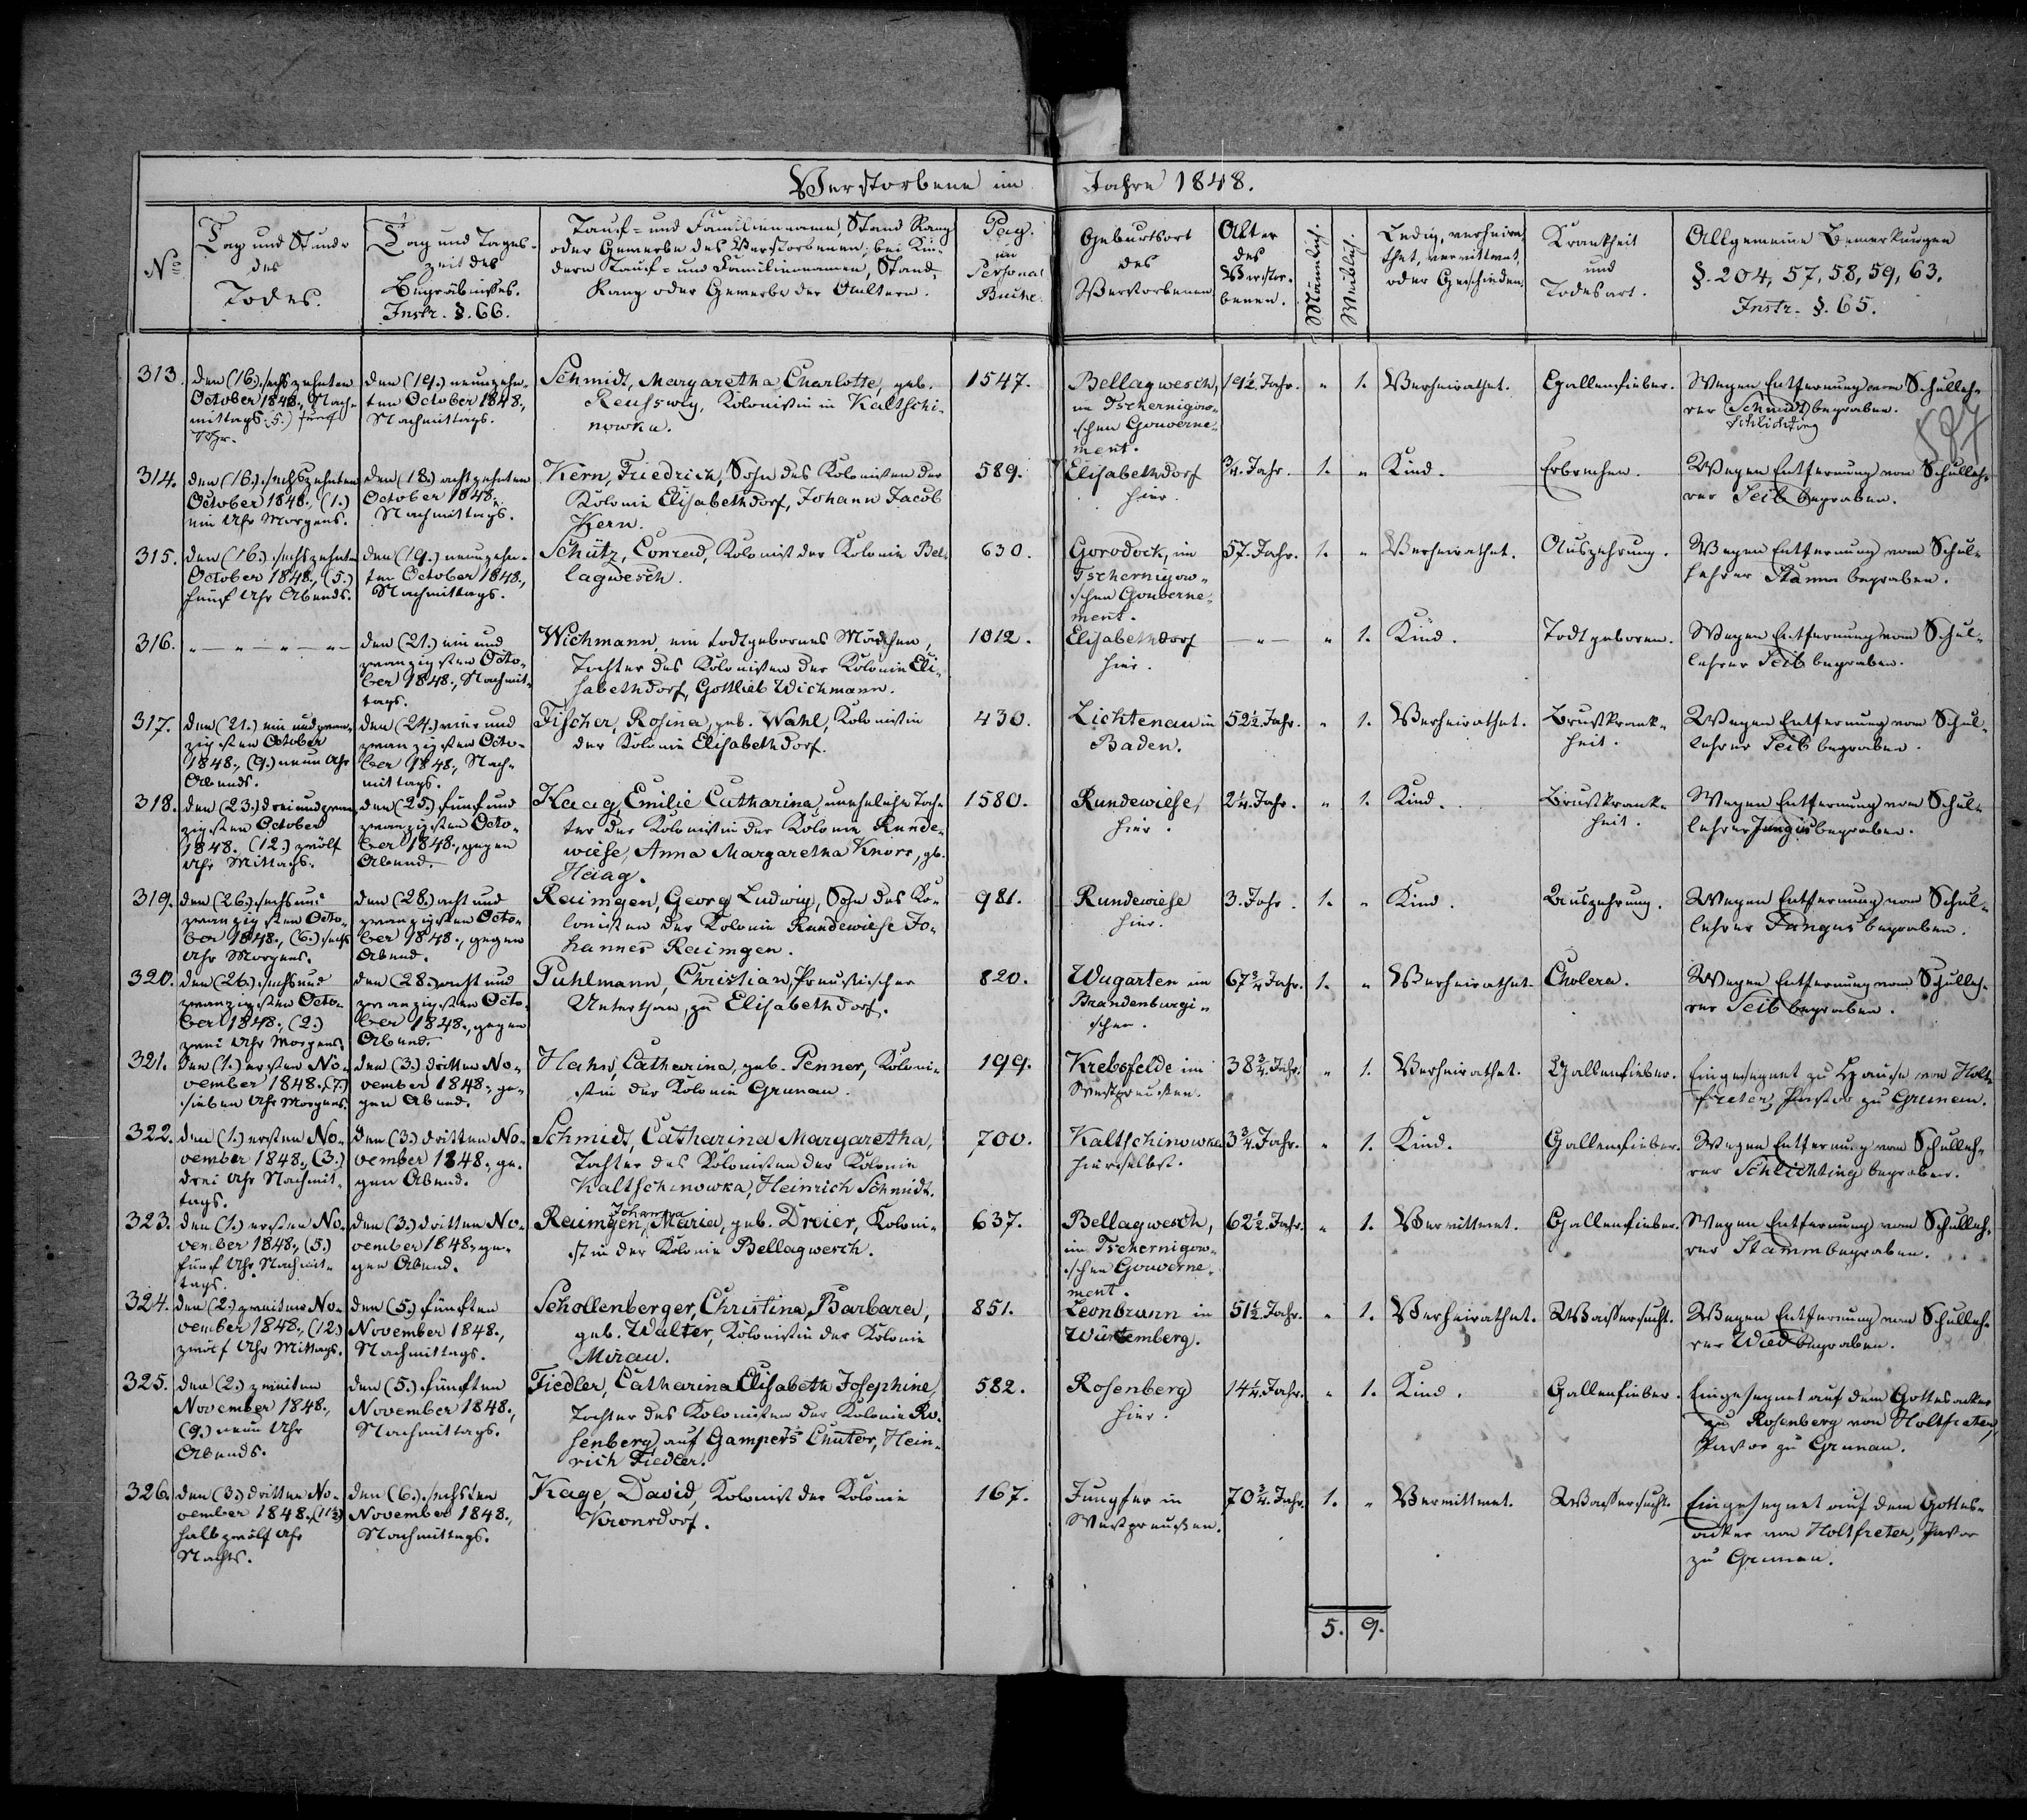 Verstorbene im Jahre 1848.
No
Tag und Stunde
des
Todes.
Tag und Tages-
zeit des
Begräbnißes.
Instr. §. 66.
Tauf- und Familienname, Stand Rang
oder Gewerbe des Verstorbenen; bei Kin-
dern Tauf- und Familiennamen, Stand,
Rang oder Gewerbe der Aeltern.
Pag.
im
Personal
Buche.
Geburtsort
des
Verstorbenen
Alter
des
Verstor-
benen.
Männlich.
Weiblich.
Ledig, verheira-
thet, verwittwet,
oder Geschieden.
Krankheit
und
Todesart.
Allgemeine Bemerkungen
§. 204, 57, 58, 59, 63.
Instr. §. 65.
313.
den (16.) sechszehnten
October 1848., Nach-
mittags (5.) fünf
Uhr.
den (19.) neunzehn-
ten October 1848.,
Nachmittags.
Schmidt, Margaretha Charlotte, geb.
Reusswig, Kolonistin in Kaltschi-
nowka.
1547.
Bellagwesch,
im Tschernigow-
schen Gouverne-
ment.
19½. Jahr.
" 1.
Verheirathet.
Gallenfieber.
Wegen Entfernung vom Schulleh-
rer Schmidt begraben.
Schlichting
314.
den (16.) sechszehnten
October 1848., (1.)
ein Uhr Morgens.
den (18.) achtzehnten
October 1848.,
Nachmittags.
Kern, Friedrich, Sohn des Kolonisten der
Kolonie Elisabethdorf, Johann Jacob
Kern.
589.
Elisabethdorf
hier.
¾. Jahr.
1. "
Kind.
Erbrechen.
Wegen Entfernung vom Schulleh-
rer Seib begraben.
315.
den (16.) sechszehnten
October 1848., (5.)
fünf Uhr Abends.
den (19.) neunzehn-
ten October 1848.,
Nachmittags.
Schütz, Conrad, Kolonist der Kolonie Bel-
lagwesch.
630.
Gorodock, im
Tschernigow-
schen Gouverne-
ment.
57. Jahr.
1. "
Verheirathet.
Auszehrung.
Wegen Entfernung vom Schul-
lehrer Stamm begraben.
316.
" — " — " — " —
den (21.) ein und
zwanzigsten Octo-
ber 1848., Nachmit-
tags.
Wichmann, ein todtgebornes Mädchen,
Tochter des Kolonisten der Kolonie Eli-
sabethdorf, Gottlieb Wichmann.
1012.
Elisabethdorf
hier.
— " —
" 1.
Kind.
Todtgeboren.
Wegen Entfernung vom Schul-
lehrer Seib begraben.
317.
den (21.) ein und zwan-
zigsten October
1848., (9.) neun Uhr
Abends.
den (24.) vier und
zwanzigsten Octo-
ber 1848., Nach-
mittags.
Fischer, Rosina, geb. Wahl, Kolonistin
der Kolonie Elisabethdorf.
430.
Lichtenau in
Baden.
52½. Jahr.
" 1.
Verheirathet.
Brustkrank-
heit.
Wegen Entfernung vom Schul-
lehrer Seib begraben.
318.
den (23.) drei und zwan-
zigsten October
1848., (12.) zwölf
Uhr Mittags.
den (25.) fünf und
zwanzigsten Octo-
ber 1848., gegen
Abend.
Haag, Emilie Catharina, uneheliche Toch-
ter der Kolonistin der Kolonie Runde-
wiese, Anna Margaretha Knorr, gb.
Haag.
1580.
Rundewiese,
hier.
2¼. Jahr.
" 1.
Kind.
Brustkrank-
heit.
Wegen Entfernung vom Schul-
lehrer Jungus begraben.
319.
den (26.) sechs und
zwanzigsten Octo-
ber 1848., (6.) sechs
Uhr Morgens.
den (28.) acht und
zwanzigsten Octo-
ber 1848., gegen
Abend.
Raimgen, Georg Ludwig, Sohn des Ko-
lonisten der Kolonie Rundewiese Jo-
hannes Raimgen.
981.
Rundewiese
hier.
3. Jahr.
1. "
Kind.
Auszehrung.
Wegen Entfernung vom Schul-
lehrer Jungus begraben.
320.
den (26.) sechs und
zwanzigsten Octo-
ber 1848., (2.)
zwei Uhr Morgens.
den (28.) acht und
zwanzigsten Octo-
ber 1848., gegen
Abend.
Puhlmann, Christian, Preussischer
Unterthan, zu Elisabethdorf.
820.
Wugarten im
Brandenburgi-
schen.
67¾. Jahr.
1. "
Verheirathet.
Cholera.
Wegen Entfernung vom Schulleh-
rer Seib begraben.
321.
den (1.) ersten No-
vember 1848., (7.)
sieben Uhr Morgens.
den (3.) dritten No-
vember 1848., ge-
gen Abend.
Hahn, Catharina, geb. Penner, Koloni-
stin der Kolonie Grunau.
199.
Krebsfelde im
Westpreussen.
38¾. Jahr.
" 1.
Verheirathet.
Gallenfieber.
Eingesegnet zu Hause von Holt-
freter, Pastor zu Grunau.
322.
den (1.) ersten No-
vember 1848., (3.)
drei Uhr Nachmit-
tags.
den (3.) dritten No-
vember 1848., ge-
gen Abend.
Schmidt, Catharina Margaretha,
Tochter des Kolonisten der Kolonie
Kaltschinowka, Heinrich Schmidt.
700.
Kaltschinowka
hierselbst.
3¾. Jahr.
" 1.
Kind.
Gallenfieber.
Wegen Entfernung vom Schulleh-
rer Schlichting begraben.
323.
den (1.) ersten No-
vember 1848., (5.)
fünf Uhr Nachmit-
tags.
den (3.) dritten No-
vember 1848., ge-
gen Abend.
Johanna
Raimgen, Maria, geb. Dreier, Koloni-
stin der Kolonie Bellagwesch.
637.
Bellagwesch,
im Tschernigow-
schen Gouverne-
ment.
62½. Jahr.
" 1.
Verwittwet.
Gallenfieber.
Wegen Entfernung vom Schulleh-
rer Stamm begraben.
324.
den (2.) zweiten No-
vember 1848., (12.)
zwölf Uhr Mittags.
den (5.) fünften
November 1848.,
Nachmittags.
Schollenberger, Christina Barbara,
geb. Walter, Kolonistin der Kolonie
Mirau.
851.
Leonbrunn in
Würtemberg.
51½. Jahr.
" 1.
Verheirathet.
Wassersucht.
Wegen Entfernung vom Schulleh-
rer Wied begraben.
325.
den (2.) zweiten
November 1848.,
(9.) neun Uhr
Abends.
den (5.) fünften
November 1848.,
Nachmittags.
Fiedler, Catharina Elisabeth Josephine,
Tochter des Kolonisten der Kolonie Ro-
senberg auf Gampers Chutor, Hein-
rich Fiedler.
582.
Rosenberg
hier.
14¼. Jahr.
" 1.
Kind.
Gallenfieber.
Eingesegnet auf dem Gottesacker
zu Rosenberg von Holtfreter,
Pastor zu Grunau.
326.
den (3.) dritten No-
vember 1848., (11½)
halb zwölf Uhr
Nachts.
den (6.) sechsten
November 1848.,
Nachmittags.
Kage, David, Kolonist der Kolonie
Kronsdorf.
167.
Jungfer in
Westpreußen.
70¾. Jahr.
1. "
Verwittwet.
Wassersucht.
Eingesegnet auf dem Gottes-
acker von Holtfreter, Pastor
zu Grunau.
5. 9.